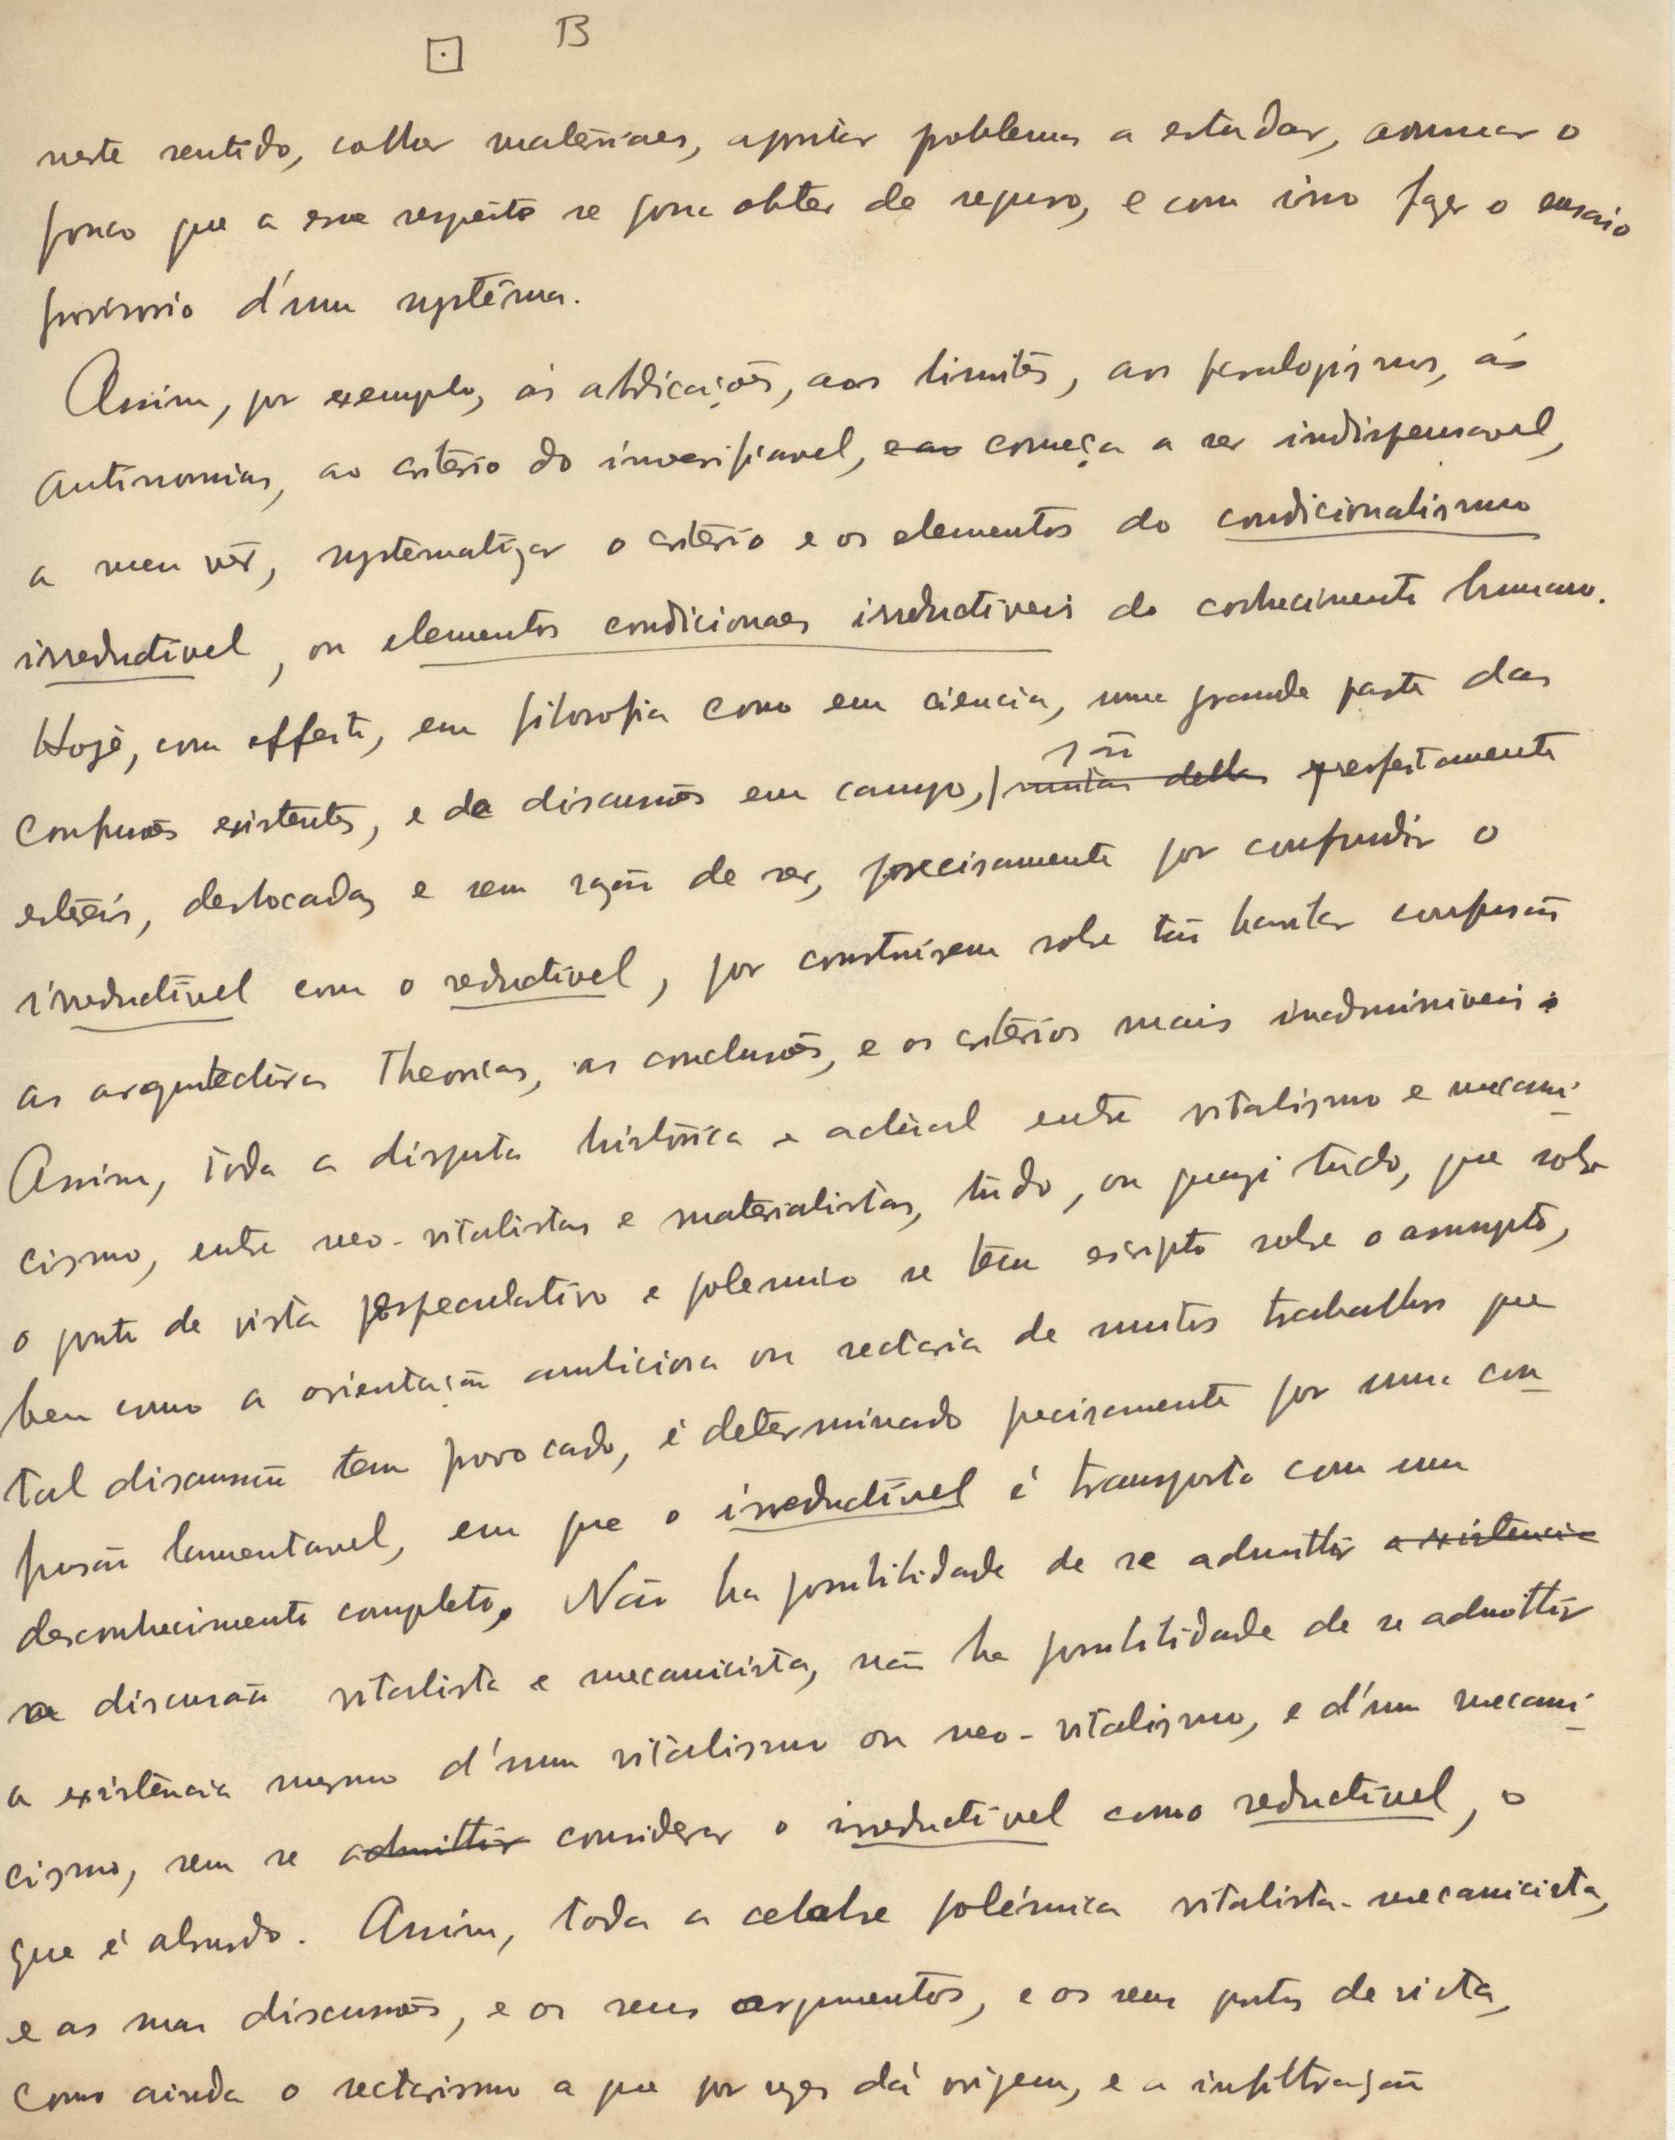 B
neste sentido, colher materiaes, apontar problemas a estudar, arrumar o
pouco que a esse respeito se possa obter de seguro, e com isso fazer o ensaio
provisorio d'um systêma.
Assim, por exemplo, ás abdicações, aos limites, aos paralogismos, ás
antinomias, ao critério do inverifiavel, e ao começa a ser indispensavel,
a meu vêr, systematizar o critério e os elementos do condicionalismo
irreductivel, ou elementos condicionaes irreductiveis do conhecimento humano.
Hoje, com effeito, em filosofia como em ciencia, uma grande parte das
confusões existentes, e de discussões em campo, são muitas dellas perfeitamente
estéreis, deslocadas e sem razão de ser, precisamente por confundir o
irreductivel com o reductivel, por construirem sobre tão bastar confusão
as arquitecturas theoricas, as conclusões, e os critérios mais inadmissiveis.
Assim, toda a disputa histórica e actual entre vitalismo e mecani-
cismo, entre neo-vitalistas e materialistas, tudo, ou quazi tudo, que sobre
o ponto de vista especulativo e polemico se tem escripto sobre o assumpto,
bem como a orientação ambiciosa ou sectaria de muitos trabalhos que
tal discussão tem provocado, é determinado precisamente por uma con-
fusão lamentavel, em que o irreductivel é transposto com um
desconhecimento completo. Não ha possibilidade de se admittir a existencia
a discussão vitalista e mecanicista, não ha possibilidade de se admittir
a existencia mesmo d'um vitalismo ou neo-vitalismo, e d'um mecani-
cismo, sem se admittir considerar o irreductivel como reductivel, o
que é absurdo. Assim, toda a celebre polémica vitalista-mecanicista,
e as suas discussões, e os seus argumentos, e os seus pontos de vista,
como ainda o sectarismo a que por vezes dá origem, e a infiltração